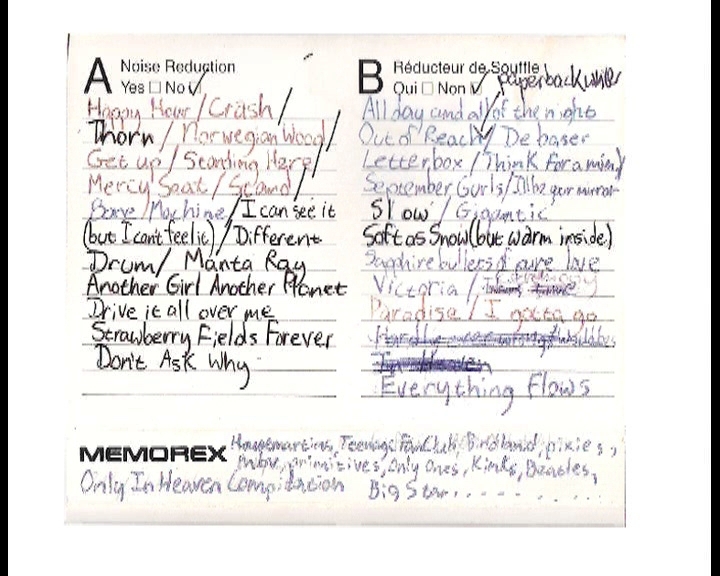 A Noise Reduction
Yes No
Happy Hour / Crash /
Thorn / Norwegian Wood /
Get up / Standing Here /
Mercy Seat / Stand /
Bone Machine / I can see it
(but I can't feel it) / Different
Drum / Manta Ray
Another Girl Another Planet
Drive it all over me
Strawberry Fields Forever
Don't Ask Why
B Réducteur de Souffle
Qui Non Paperback writer
All day and all of the night
Out of Reach / Debaser
Letterbox / Think for a min /
September Gurls / I'll be your mirror
Slow / Gigantic
Soft as Snow (but warm inside)
Sapphire bullets of pure love
Victoria /
Paradise / I gotta go
Everything Flows
MEMOREX Housemartins, Teenage FanClub, Birdland, pixies,
mbv, primitives, Only Ones, Kinks, Beatles,
Only In Heaven Compilation Big Star